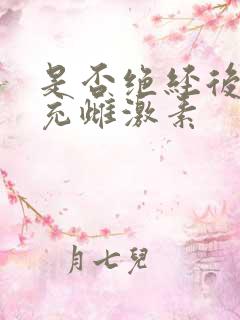 是否绝经後
充雌激素
月七兒